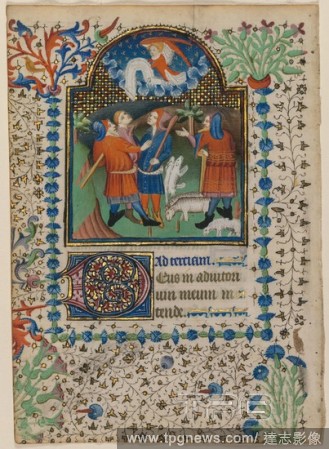 Ad terciam.
Deus in adiutori
um meum in
tende.
www.tpgnews.com / 達志影像